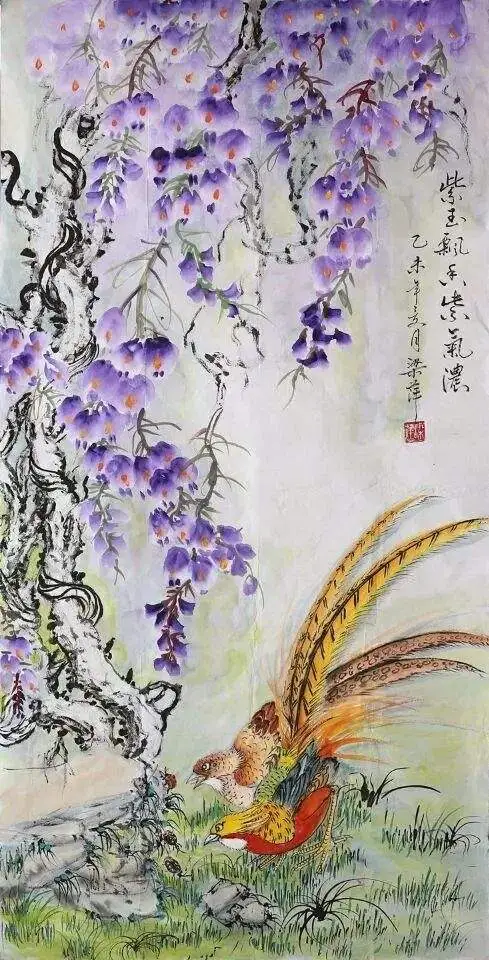 紫玉飄香紫氣濃
乙未年月梁萍